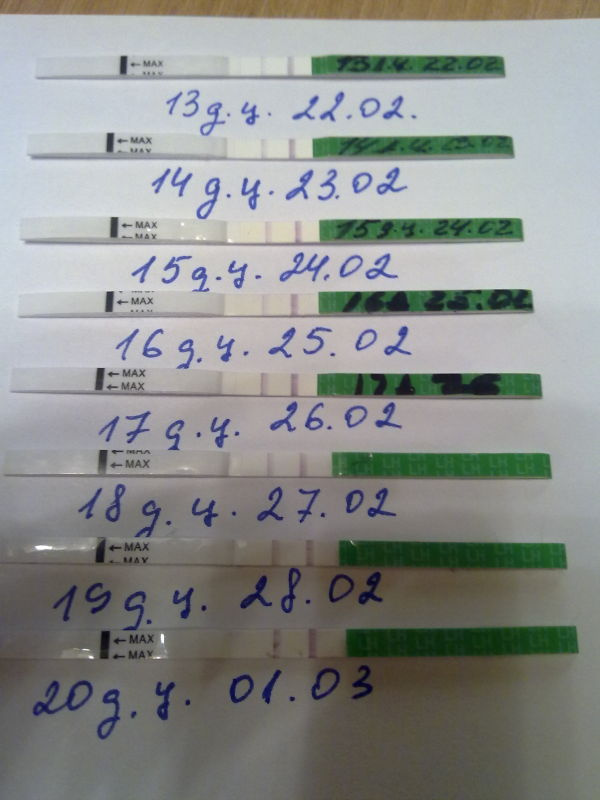 ← MAX
← MAX
13д.ц. 22.02
13 д.ц. 22.02.
← MAX
← MAX
14 д.ц. 23.02
14 д.ц. 23.02
← MAX
← MAX
15д.ц. 24.02
15 д.ц. 24.02
← MAX
16д 25.02
16 д.ц. 25.02
← MAX
← MAX
17д
17 д.ц. 26.02
← MAX
LH
18 д.ц. 27.02
← MAX
← MAX
LH
19 д.ц. 28.02
← MAX
← MAX
LH
20 д.ц. 01.03